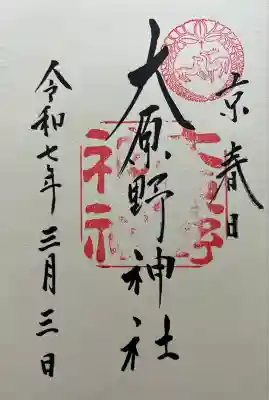 京春日
大原野神社
令和七年三月三日